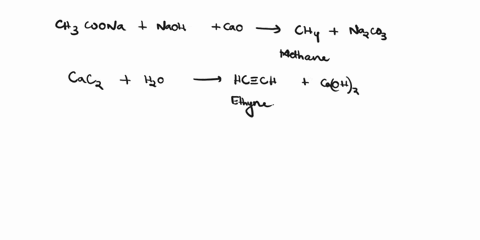 CH3 COONa + NaOH + CaO → CH4 + Na2CO3
Methane
CaC2 + H2O → HC≡CH + Ca(OH)2
Ethyne